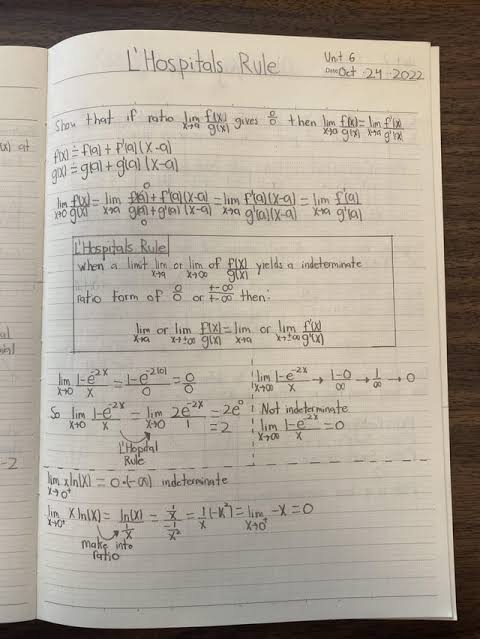 L'Hospitals Rule
Unit 6
Date Oct 24 2022
Show that if ratio lim x→a f(x)/g(x) gives 0/0 then lim x→a f(x)/g(x) = lim x→a f'(x)/g'(x)
f(x) ≐ f(a) + f'(a)(x-a)
g(x) ≐ g(a) + g'(a)(x-a)
lim x→0 f(x)/g(x) = lim x→a f(a) + f'(a)(x-a)/g(a) + g'(a)(x-a) = lim x→a f'(a)(x-a)/g'(a)(x-a) = lim x→a f'(a)/g'(a)
0
0
L'Hospitals Rule
When a limit lim x→a or lim x→∞ of f(x)/g(x) yields a indeterminate
ratio form of 0/0 or +-∞/+-∞ then:
lim x→a or lim x→±∞ f(x)/g(x) = lim x→a or lim x→±∞ f'(x)/g'(x)
lim x→0 1-e^-2x/x = 1-e^-2(0)/0 = 0/0
So lim x→0 1-e^-2x/x = lim x→0 2e^-2x/1 = 2e^0
= 2
L'Hopital
Rule
lim x→∞ 1-e^-2x/x → 1-0/∞ → 1/∞ → 0
Not indeterminate
lim x→∞ 1-e^-2x/x = 0
lim x→0+ xln(x) = 0·(-∞) indeterminate
lim x→0+ x ln(x) = ln(x)/1/x = 1/x/-1/x² = 1/x(-x²) = lim x→0+ -x = 0
make into
ratio
(x) at
-2